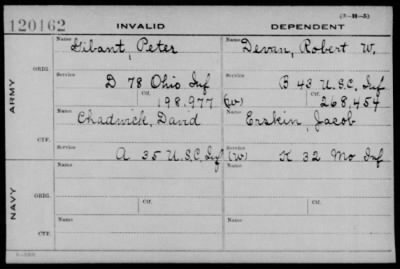 120162 INVALID DEPENDENT (3-H-5)
ARMY
ORIG.
Name Gibant, Peter
Name Devan, Robert W.
Service D 78 Ohio Inf
Service B 43 U.S.C. Inf
Ctf. 198,977
(W) Ctf. 268,454
CTF.
Name Chadwick, David
Name Erskin, Jacob
Service A 35 U.S.C. Inf
Service (W) K 32 Mo Inf
NAVY
ORIG.
Name
Name
Service Ctf.
Service Ctf.
CTF.
Name
Name